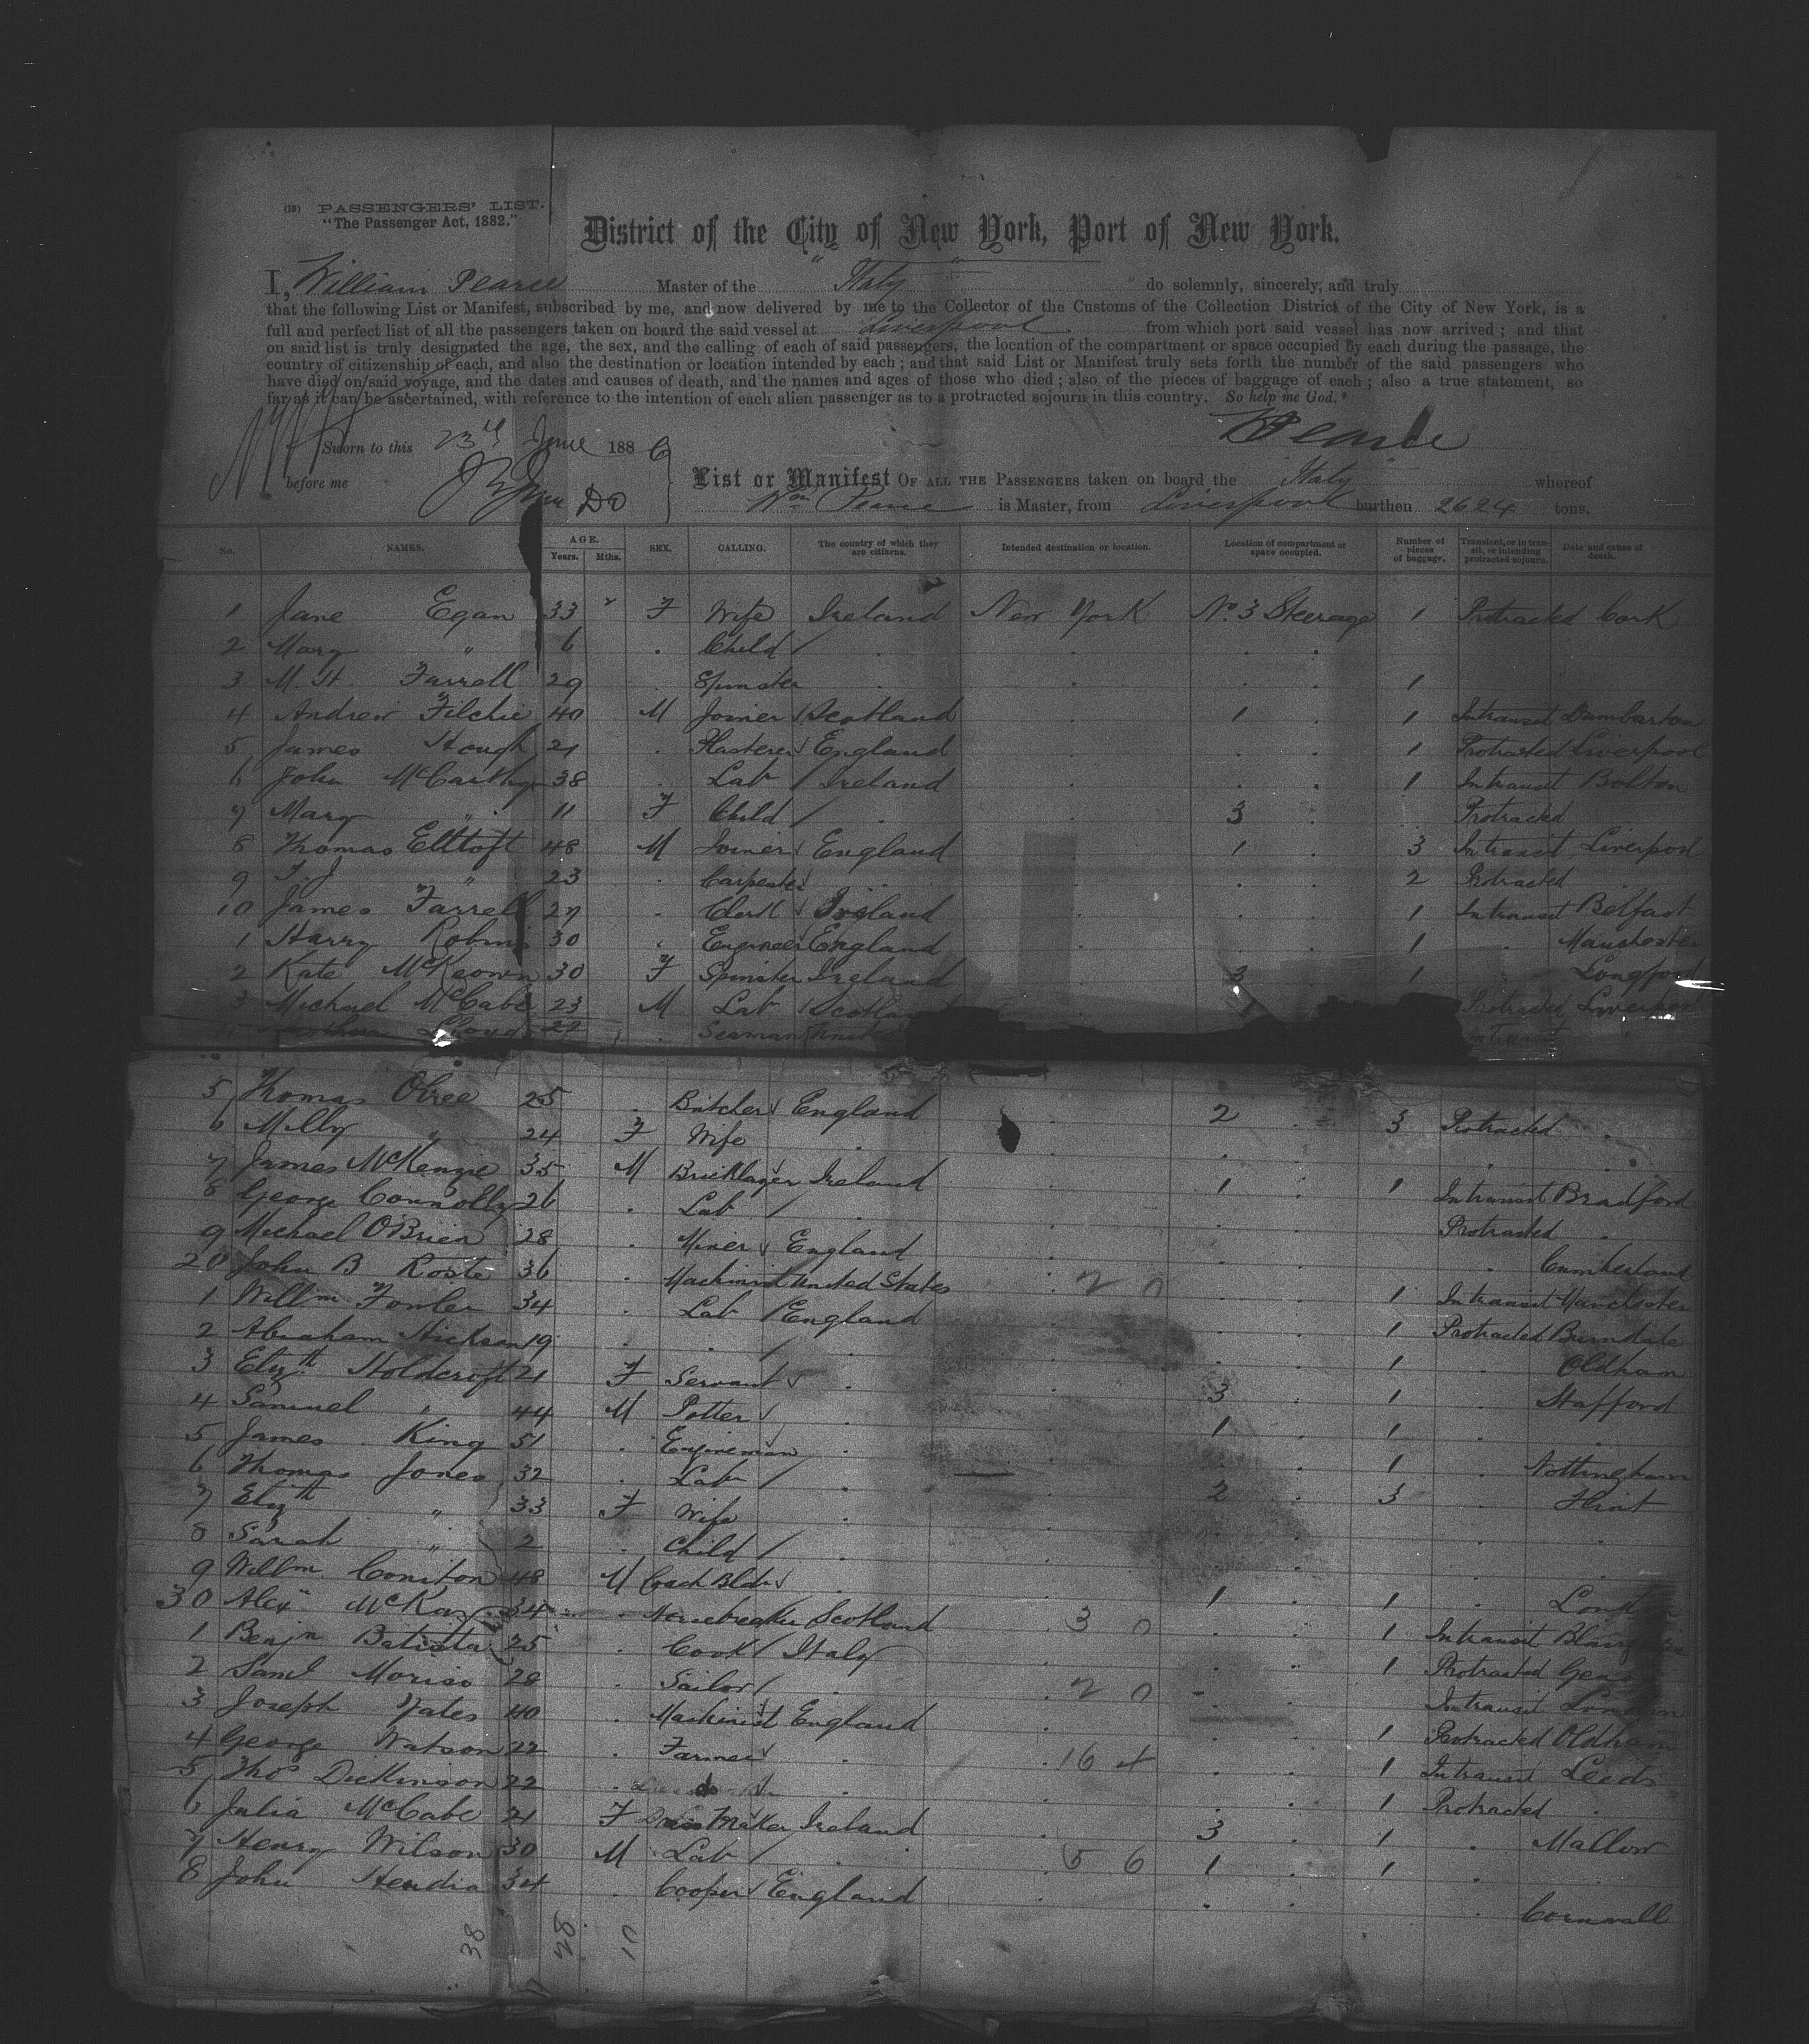 (18) PASSENGERS' LIST.
"The Passenger Act, 1882."
District of the City of New York, Port of New York.
I, William Pearce Master of the "Italy" do solemnly, sincerely, and truly
that the following List or Manifest, subscribed by me, and now delivered by me to the Collector of the Customs of the Collection District of the City of New York, is a
full and perfect list of all the passengers taken on board the said vessel at Liverpool from which port said vessel has now arrived; and that
on said list is truly designated the age, the sex, and the calling of each of said passengers, the location of the compartment or space occupied by each during the passage, the
country of citizenship of each, and also the destination or location intended by each; and that said List or Manifest truly sets forth the number of the said passengers who
have died on said voyage, and the dates and causes of death, and the names and ages of those who died; also of the pieces of baggage of each; also a true statement, so
far as it can be ascertained, with reference to the intention of each alien passenger as to a protracted sojourn in this country. So help me God.*
W Pearce
Sworn to this 23rd June 1886
before me DO
List or Manifest OF ALL THE PASSENGERS taken on board the Italy whereof
Wm Pearce is Master, from Liverpool burthen 2624 tons.
No. NAMES. AGE. Years. Mths. SEX. CALLING. The country of which they are citizens. Intended destination or location. Location of compartment or space occupied. Number of pieces of baggage. Transient, or in transit, or intending protracted sojourn. Date and cause of death.
1 Jane Egan 33 F Wife Ireland New York No. 3 Steerage 1 Protracted Cork
2 Mary " 6 . Child / . . . .
3 M. H. Farrell 29 . Spinster . . . . 1
4 Andrew Filchie 40 M Joiner Scotland . 1 . 1 Intransit Dumbarton
5 James Hough 21 . Plasterer England . . . 1 Protracted Liverpool
6 John McCarthy 38 . Lab / Ireland . . . 1 Intransit Bolton
7 Mary " 11 F Child / . . 3 . Protracted
8 Thomas Elltoft 48 M Joiner England . 1 . 3 Intransit Liverpool
9 T. J " 23 . Carpenter . . . . 2 Protracted .
10 James Farrell 27 . Clerk Ireland . . . 1 Intransit Belfast
1 Harry Robins 30 . Engineer England . . . 1 . Manchester
2 Kate McKeown 30 F Spinster Ireland 3 1 Longford
3 Michael McCabe 23 M Lab / Scotland 1 Protracted Liverpool
Lloyd 22 . Seaman Intransit "
5 Thomas Obree 25 . Butcher England . 2 . 3 Protracted .
6 Milly " 24 F Wife . . . . . .
7 James McKenzie 35 M Bricklayer Ireland . 1 . 1 Intransit Bradford
8 George Connolly 26 . Lab / . . . . Protracted .
9 Michael OBrien 28 . Miner England . . . . Cumberland
20 John B Roste 36 . Machinist United States . 2 0 . . 1 Intransit Manchester
1 Willm Fowler 34 . Lab / England . . . 1 Protracted
2 Abraham Hickson 19 . . / . . . . 1 . Oldham
3 Elizth Holdcroft 21 F Servant . . 3 . 1 . Stafford
4 Samuel " 44 M Potter . . 1 . 1 . .
5 James King 51 . Engineman . . . . 1 . Nottingham
6 Thomas Jones 32 . Lab / . . 2 . 3 . Flint
7 Elizth " 33 F Wife . . . . . .
8 Sarah " 2 . Child / . . . . . .
9 Willm Coniton 48 M Coach Bldr . . 1 . 1 . Lond
30 Alex McKay 34 . Horsebreaker Scotland . 3 0 . . 1 Intransit
1 Benjn Batista 25 . Cook / Italy . . . 1 Protracted
2 Saml Moriso 28 . Sailor / . . 2 0 . . Intransit London
3 Joseph Yates 40 . Machinist England . . . 1 Protracted Oldham
4 George Watson 22 . Farmer . . 16 4 . . 1 Intransit Leeds
5 Thos Dickinson 22 . do . . . . 1 Protracted .
6 Julia McCabe 21 F Dress Maker Ireland . 3 . 1 . Mallow
7 Henry Wilson 30 M Lab / . . 5 6 1 . 1 . .
8 John Hendra 34 . Cooper England . . . . Cornwall
38 28 10